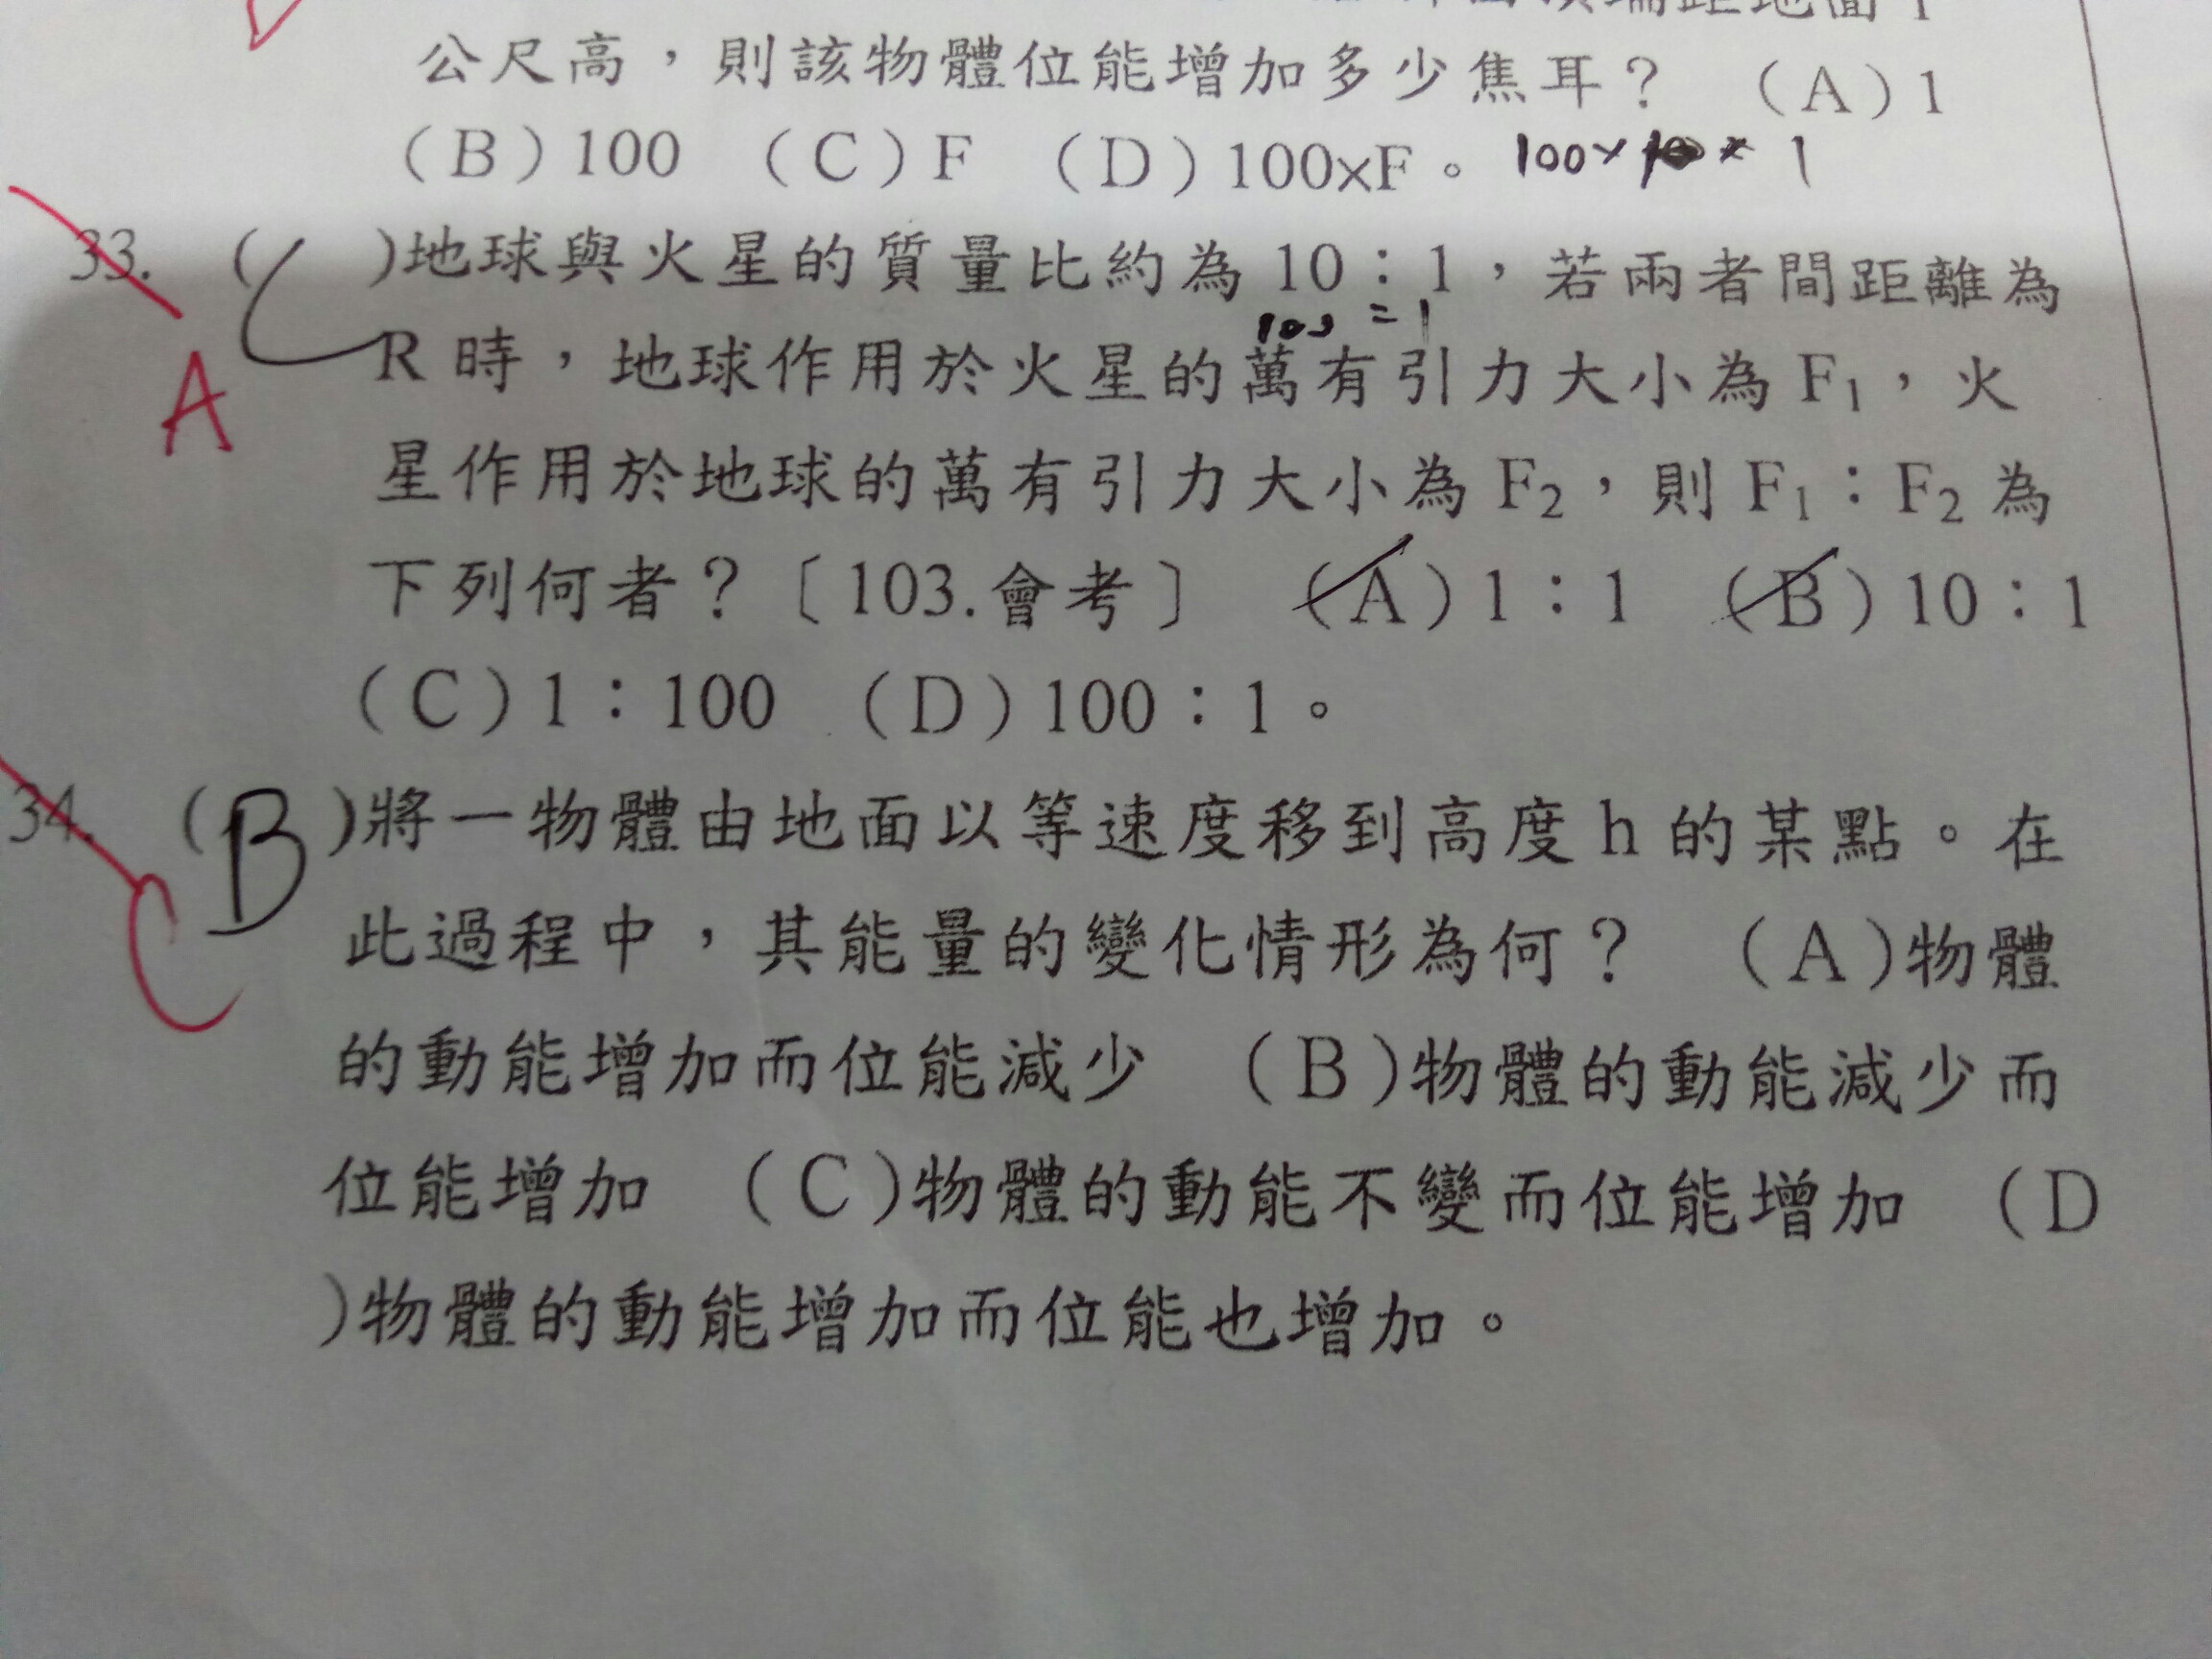 公尺高，則該物體位能增加多少焦耳？ （A）1
（B）100 （C）F （D）100×F。 100× × 1
33. ( C )地球與火星的質量比約為 10：1，若兩者間距離為
= 1
A R 時，地球作用於火星的萬有引力大小為 F₁，火
星作用於地球的萬有引力大小為 F₂，則 F₁：F₂ 為
下列何者？〔103.會考〕 （A）1：1 （B）10：1
（C）1：100 （D）100：1。
34. ( B )將一物體由地面以等速度移到高度 h 的某點。在
C 此過程中，其能量的變化情形為何？ （A)物體
的動能增加而位能減少 （B)物體的動能減少而
位能增加 （C)物體的動能不變而位能增加 （D
)物體的動能增加而位能也增加。